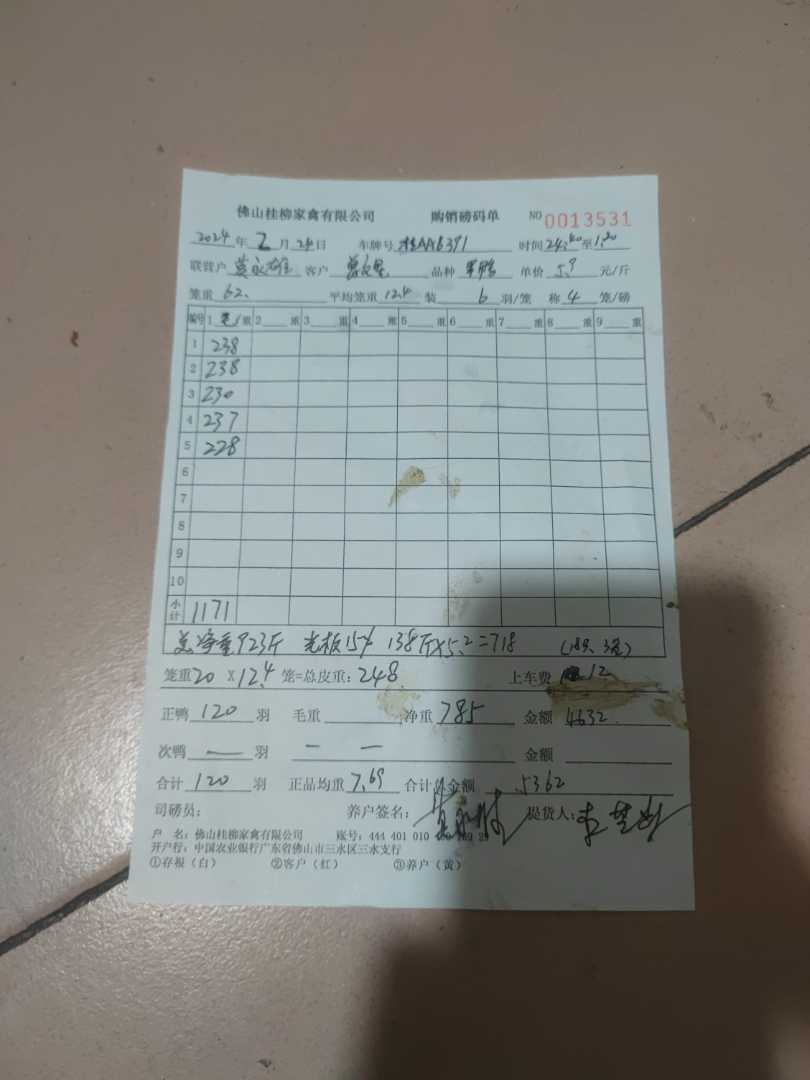 佛山桂柳家禽有限公司 购销磅码单 NO 0013531
2024年2月24日 车牌号 桂AA6391 时间 至1:20
联营户 莫永雄 客户 品种 单价 5.9 元/斤
笼重 62. 平均笼重 12.4 装 6 羽/笼 称 4 笼/磅
编号 1 笼/重 2 重 3 重 4 重 5 重 6 重 7 重 8 重 9 重
1 238
2 238
3 230
4 237
5 228
6
7
8
9
10
小计 1171
总净重923斤 光板15% 138斤×5.2=718
笼重20×12.4笼=总皮重:248 上车费 12
正鸭 120 羽 毛重 净重 785 金额 4632.
次鸭 — 羽 — — 金额
合计 120 羽 正品均重 7.69 合计总金额 5362
司磅员: 养户签名: 提货人:
户 名:佛山桂柳家禽有限公司 账号:444 401 010 400 29
开户行:中国农业银行广东省佛山市三水区三水支行
①存根(白) ②客户(红) ③养户(黄)